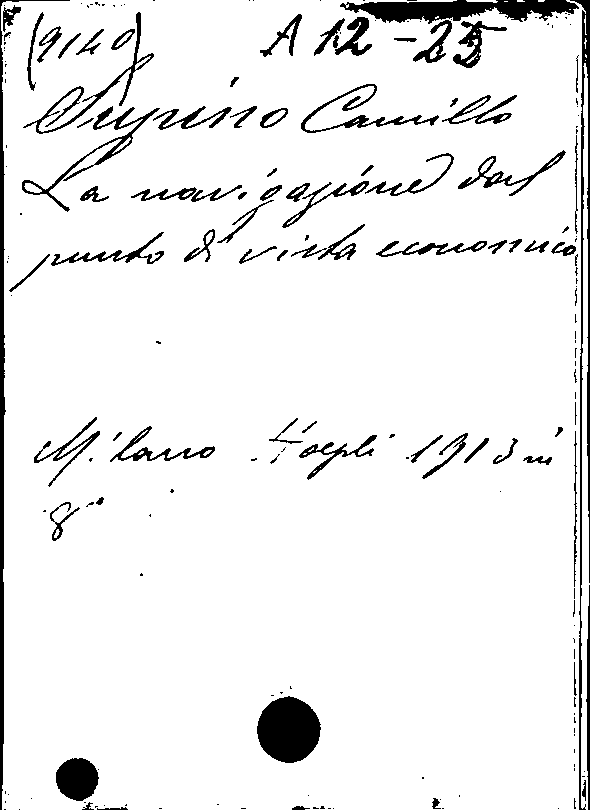 (9140) A 12-25
Supino Camillo
La navigazione dal
punto di vista economico
Milano Hoepli 1913 in
8°